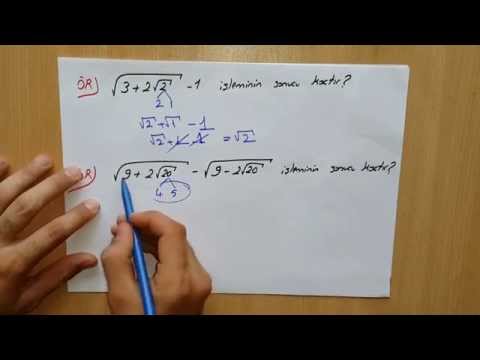 ÖR) √(3+2√2) - 1 işleminin sonucu kaçtır?
2 1
√2+√1 - 1
√2+1-1 = √2
ÖR) √(9+2√20) - √(9-2√20) işleminin sonucu kaçtır?
4 5